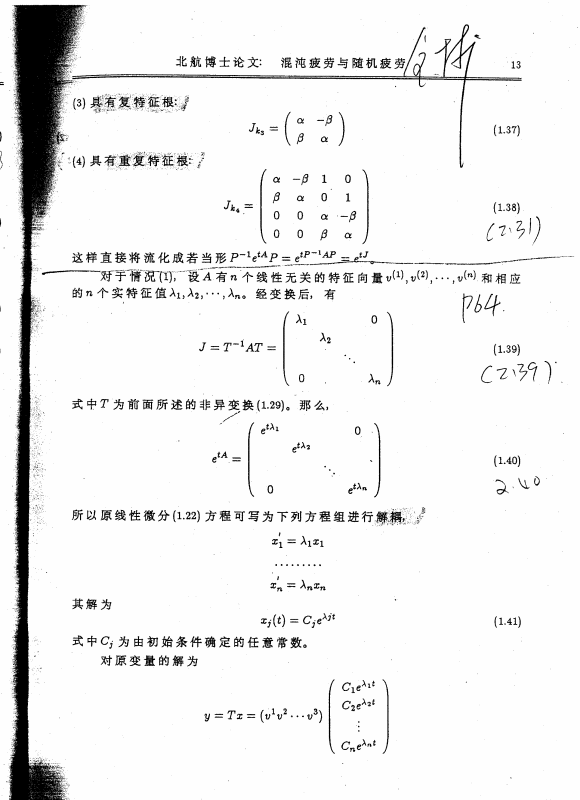 北航博士论文: 混沌疲劳与随机疲劳 13
(3) 具有复特征根:
J_{k_3} = ( α −β ; β α ) (1.37)
(4) 具有重复特征根:
J_{k_4} = ( α −β 1 0 ; β α 0 1 ; 0 0 α −β ; 0 0 β α ) (1.38)
(2.31)
这样直接将流化成若当形 P^{-1}e^{tA}P = e^{tP^{-1}AP} = e^{tJ}。
对于情况(1), 设 A 有 n 个线性无关的特征向量 v^{(1)}, v^{(2)}, ···, v^{(n)} 和相应
的 n 个实特征值 λ_1, λ_2, ···, λ_n。经变换后, 有
P64.
J = T^{-1}AT = ( λ_1 0 ; λ_2 ; ⋱ ; 0 λ_n ) (1.39)
(2.39)
式中 T 为前面所述的非异变换 (1.29)。那么,
e^{tA} = ( e^{tλ_1} 0 ; e^{tλ_2} ; ⋱ ; 0 e^{tλ_n} ) (1.40)
2.40
所以原线性微分 (1.22) 方程可写为下列方程组进行解耦,
x_1' = λ_1x_1
·········
x_n' = λ_nx_n
其解为
x_j(t) = C_je^{λjt} (1.41)
式中 C_j 为由初始条件确定的任意常数。
对原变量的解为
y = Tx = (v^1v^2 ··· v^3) ( C_1e^{λ_1t} ; C_2e^{λ_2t} ; ⋮ ; C_ne^{λ_nt} )